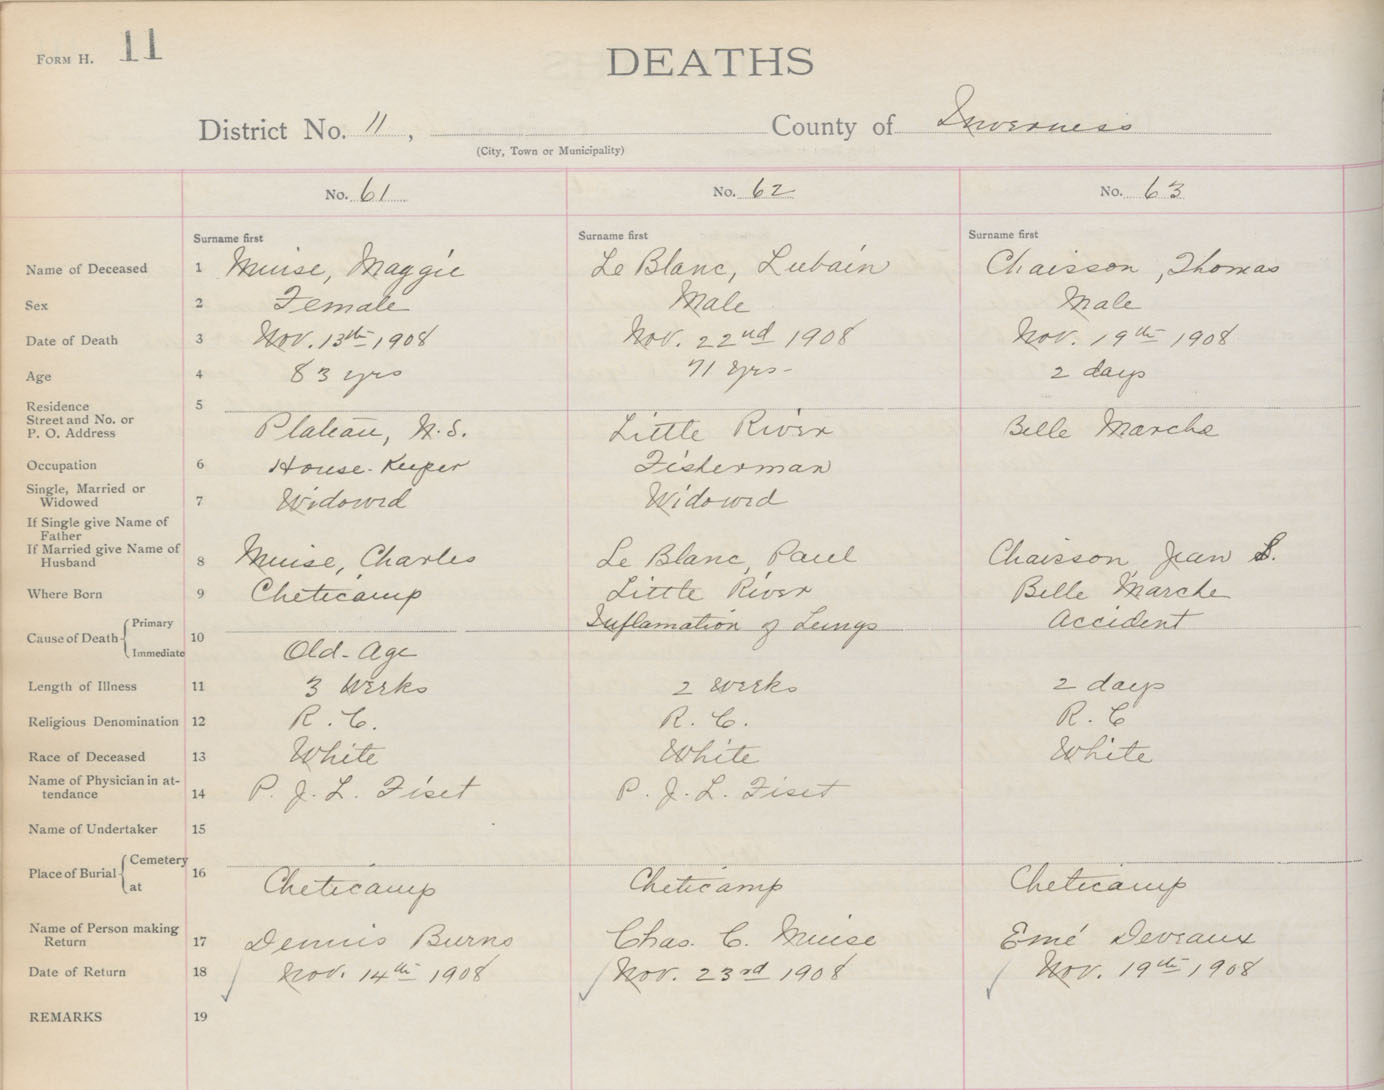 FORM H. 11
DEATHS
District No. 11, County of Inverness
(City, Town or Municipality)
No. 61 No. 62 No. 63
Surname first Surname first Surname first
Name of Deceased 1 Muise, Maggie Le Blanc, Lubain Chaisson, Thomas
Sex 2 Female Male Male
Date of Death 3 Nov. 13th 1908 Nov. 22nd 1908 Nov. 19th 1908
Age 4 83 yrs 71 yrs- 2 days
Residence 5
Street and No. or
P. O. Address Plateau, N.S. Little River Belle Marche
Occupation 6 House-Keeper Fisherman
Single, Married or
Widowed 7 Widowed Widowed
If Single give Name of
Father
If Married give Name of
Husband 8 Muise, Charles Le Blanc, Paul Chaisson, Jean S.
Where Born 9 Cheticamp Little River Belle Marche
Cause of Death Primary 10 Inflamation of Lungs Accident
Immediate Old-Age
Length of Illness 11 3 Weeks 2 weeks 2 days
Religious Denomination 12 R. C. R. C. R. C
Race of Deceased 13 White White White
Name of Physician in at-
tendance 14 P. J. L. Fiset P. J. L. Fiset
Name of Undertaker 15
Place of Burial Cemetery 16
at Cheticamp Cheticamp Cheticamp
Name of Person making
Return 17 Dennis Burns Chas. C. Muise Emé Deveaux
Date of Return 18 Nov. 14th 1908 Nov. 23rd 1908 Nov. 19th 1908
REMARKS 19